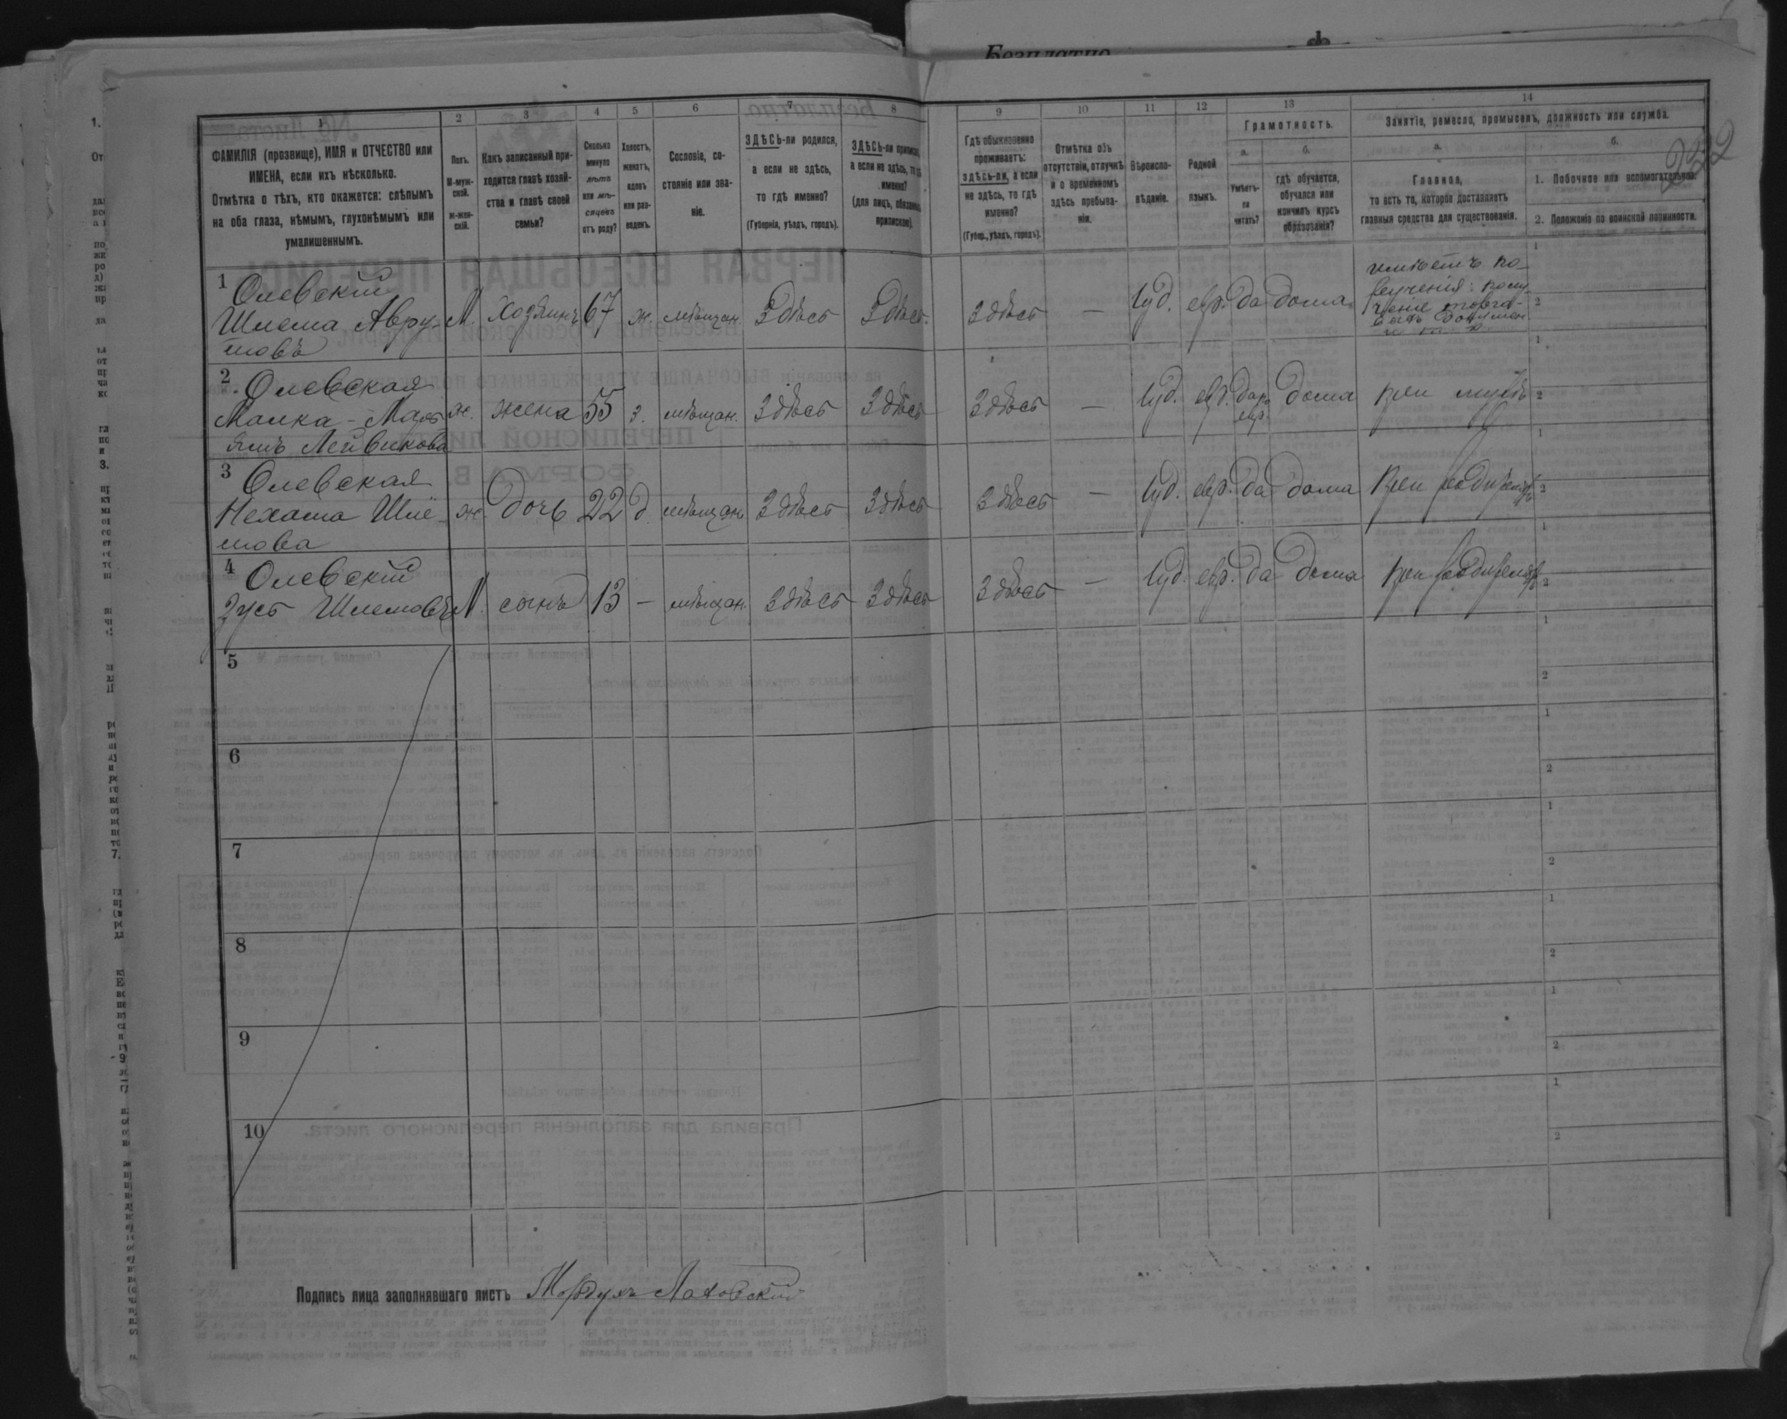 Безплатно
1 2 3 4 5 6 7 8 9 10 11 12 13 14
232
ФАМИЛІЯ (прозвище), ИМЯ и ОТЧЕСТВО или
ИМЕНА, если ихъ нѣсколько.
Отмѣтка о тѣхъ, кто окажется: слѣпымъ
на оба глаза, нѣмымъ, глухонѣмымъ или
умалишеннымъ.
Полъ.
М-муж-
ской.
ж-жен-
скій.
Какъ записанный при-
ходится главѣ хозяй-
ства и главѣ своей
семьи?
Сколько
минуло
лѣтъ
или мѣ-
сяцевъ
отъ роду?
Холостъ,
женатъ,
вдовъ
или раз-
веденъ.
Сословіе, со-
стояніе или зва-
ніе.
ЗДѢСЬ-ли родился,
а если не здѣсь,
то гдѣ именно?
(Губернія, уѣздъ, городъ).
ЗДѢСЬ-ли приписанъ,
а если не здѣсь, то гдѣ
именно?
(для лицъ, обязанныхъ
припискою).
Гдѣ обыкновенно
проживаетъ:
здѣсь-ли, а если
не здѣсь, то гдѣ
именно?
(Губер., уѣздъ, городъ).
Отмѣтка объ
отсутствіи, отлучкѣ
и о временномъ
здѣсь пребыва-
ніи.
Вѣроиспо-
вѣданіе.
Родной
языкъ.
Грамотность.
а.
Умѣетъ-
ли
читать?
б.
гдѣ обучается,
обучался или
кончилъ курсъ
образованія?
Занятіе, ремесло, промыселъ, должность или служба.
а.
Главное,
то есть то, которое доставляетъ
главныя средства для существованія.
б.
1. Побочное или вспомогательное.
2. Положеніе по воинской повинности.
1 Олевскій
Шлема Авру-
мовъ
М. хозяинъ 67 ж. мѣщан. Здѣсь Здѣсь Здѣсь — Іуд. евр. да дома
2. Олевская
Малка -
Лейвикова
ж. жена 55 з. мѣщан. Здѣсь Здѣсь Здѣсь — Іуд. евр. да дома при мужѣ
3 Олевская
Нехама Шле-
мова
ж. дочь 22 д мѣщан. Здѣсь Здѣсь Здѣсь — Іуд. евр. да дома при родителяхъ
4 Олевскій
Зусь Шлемовъ М. сынъ 13 — мѣщан. Здѣсь Здѣсь Здѣсь — Іуд. евр. да дома при родителяхъ
5
6
7
8
9
10
Подпись лица заполнявшаго листъ